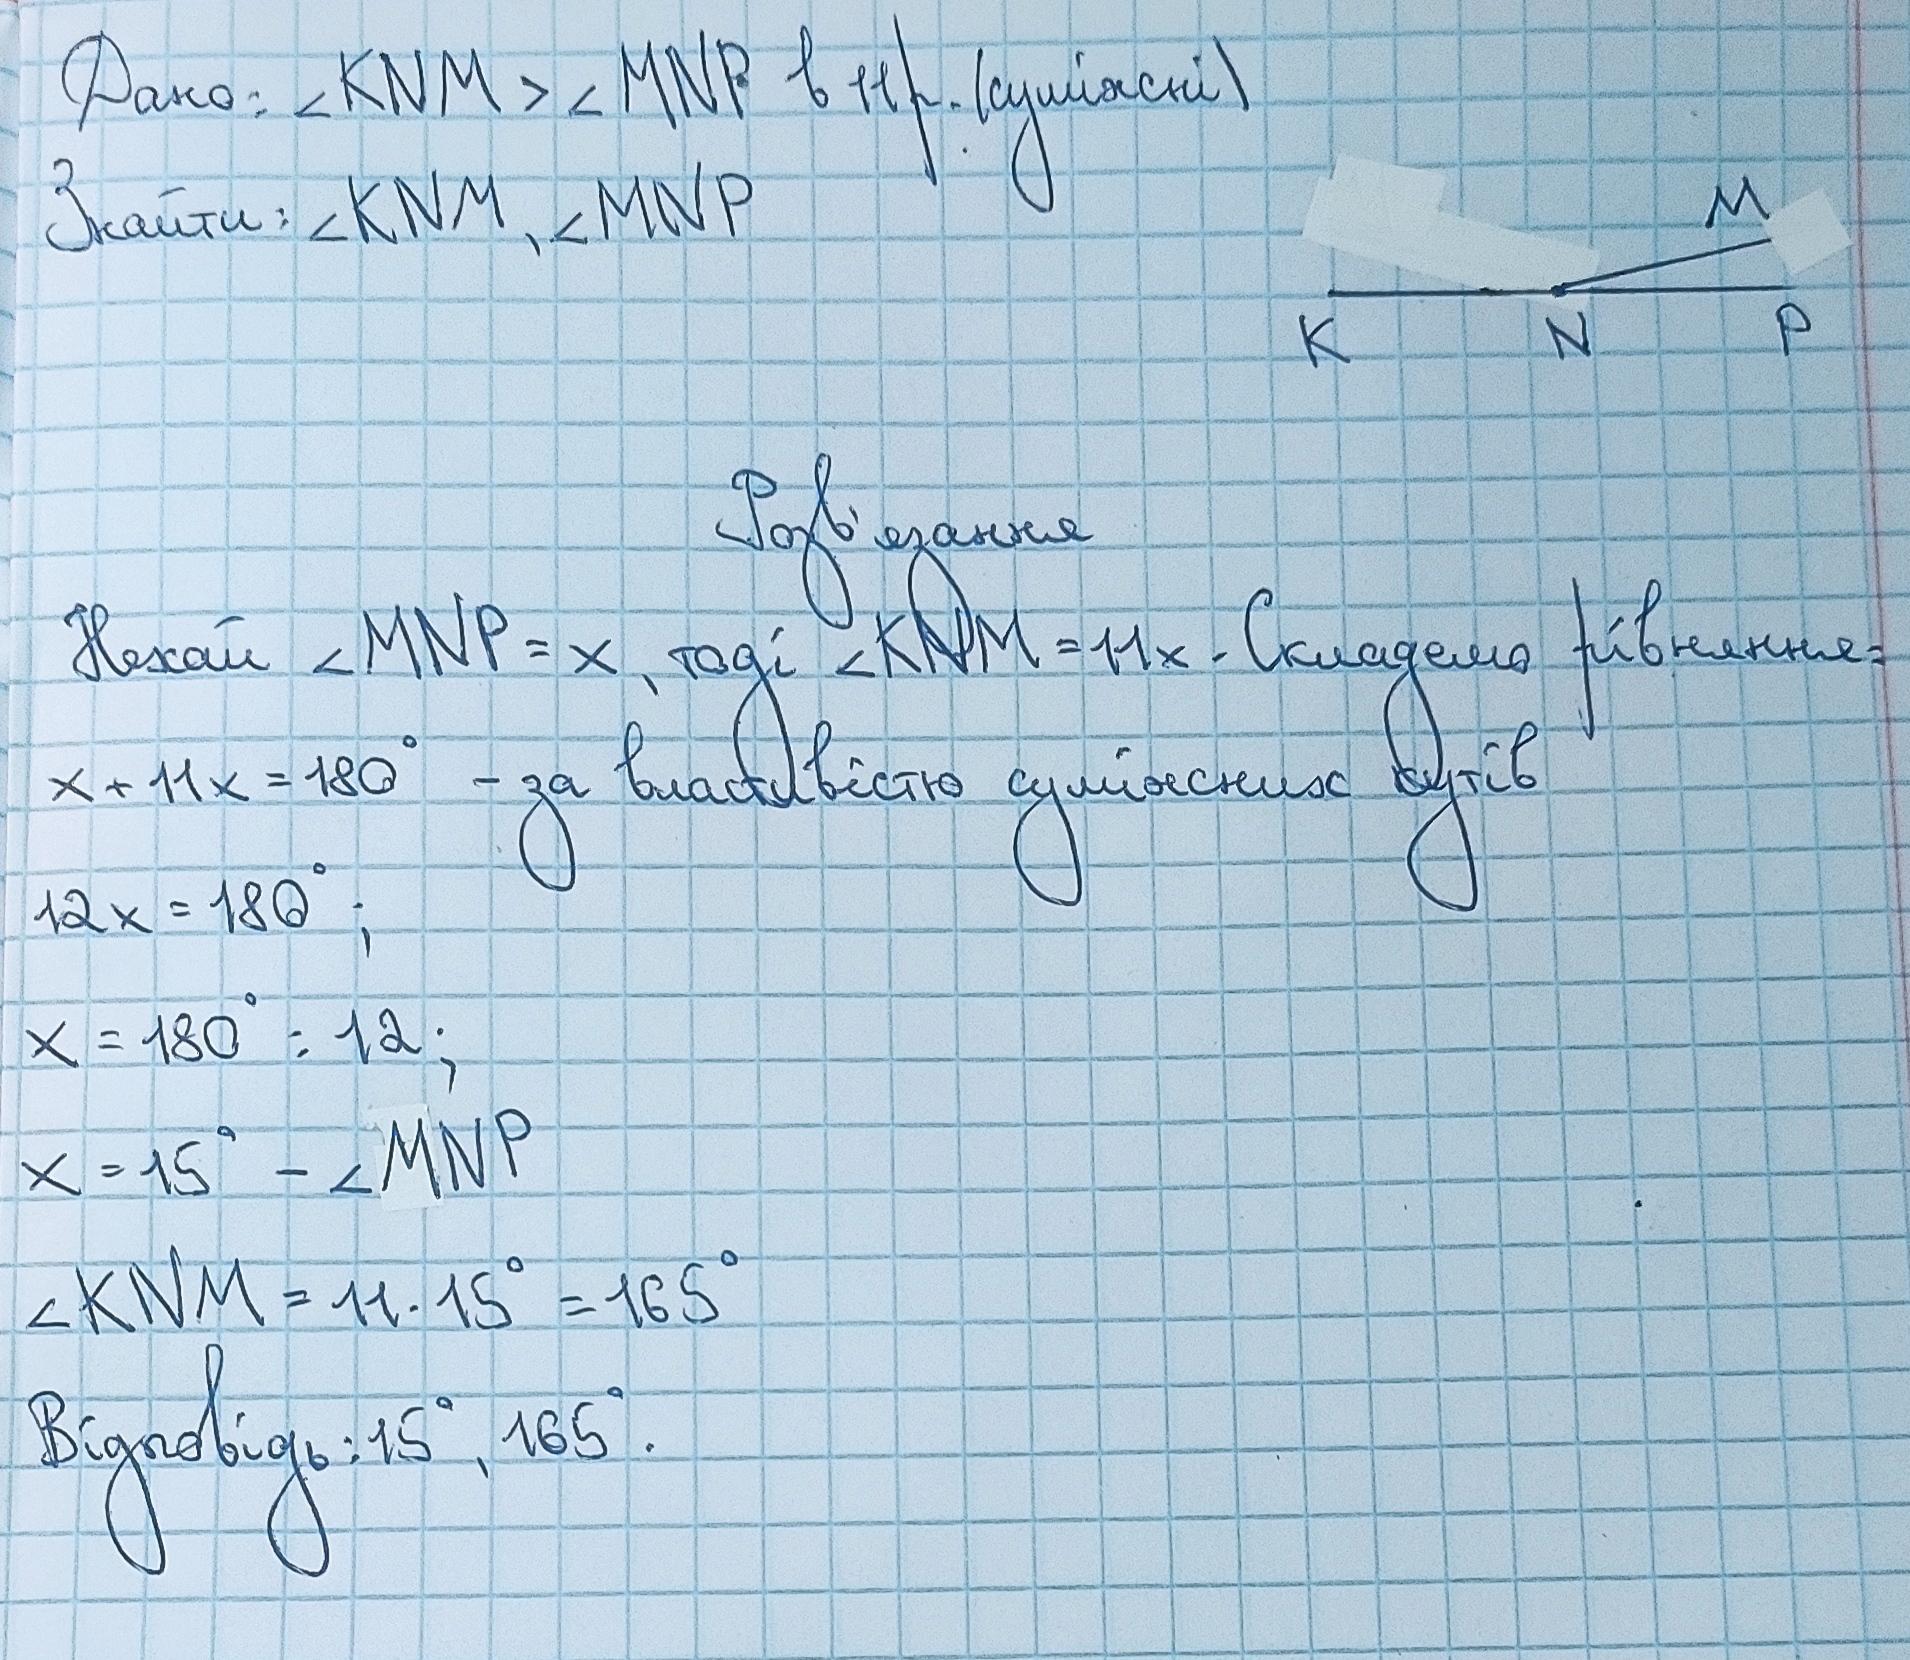 Дано: ∠KNM > ∠MNP в 11 р. (суміжні)
Знайти: ∠KNM, ∠MNP
M
K N P
Розв'язання
Нехай ∠MNP = x, тоді ∠KNM = 11x. Складемо рівняння:
x + 11x = 180° - за властивістю суміжних кутів
12x = 180°;
x = 180° : 12;
x = 15° - ∠MNP
∠KNM = 11 · 15° = 165°
Відповідь: 15°, 165°.